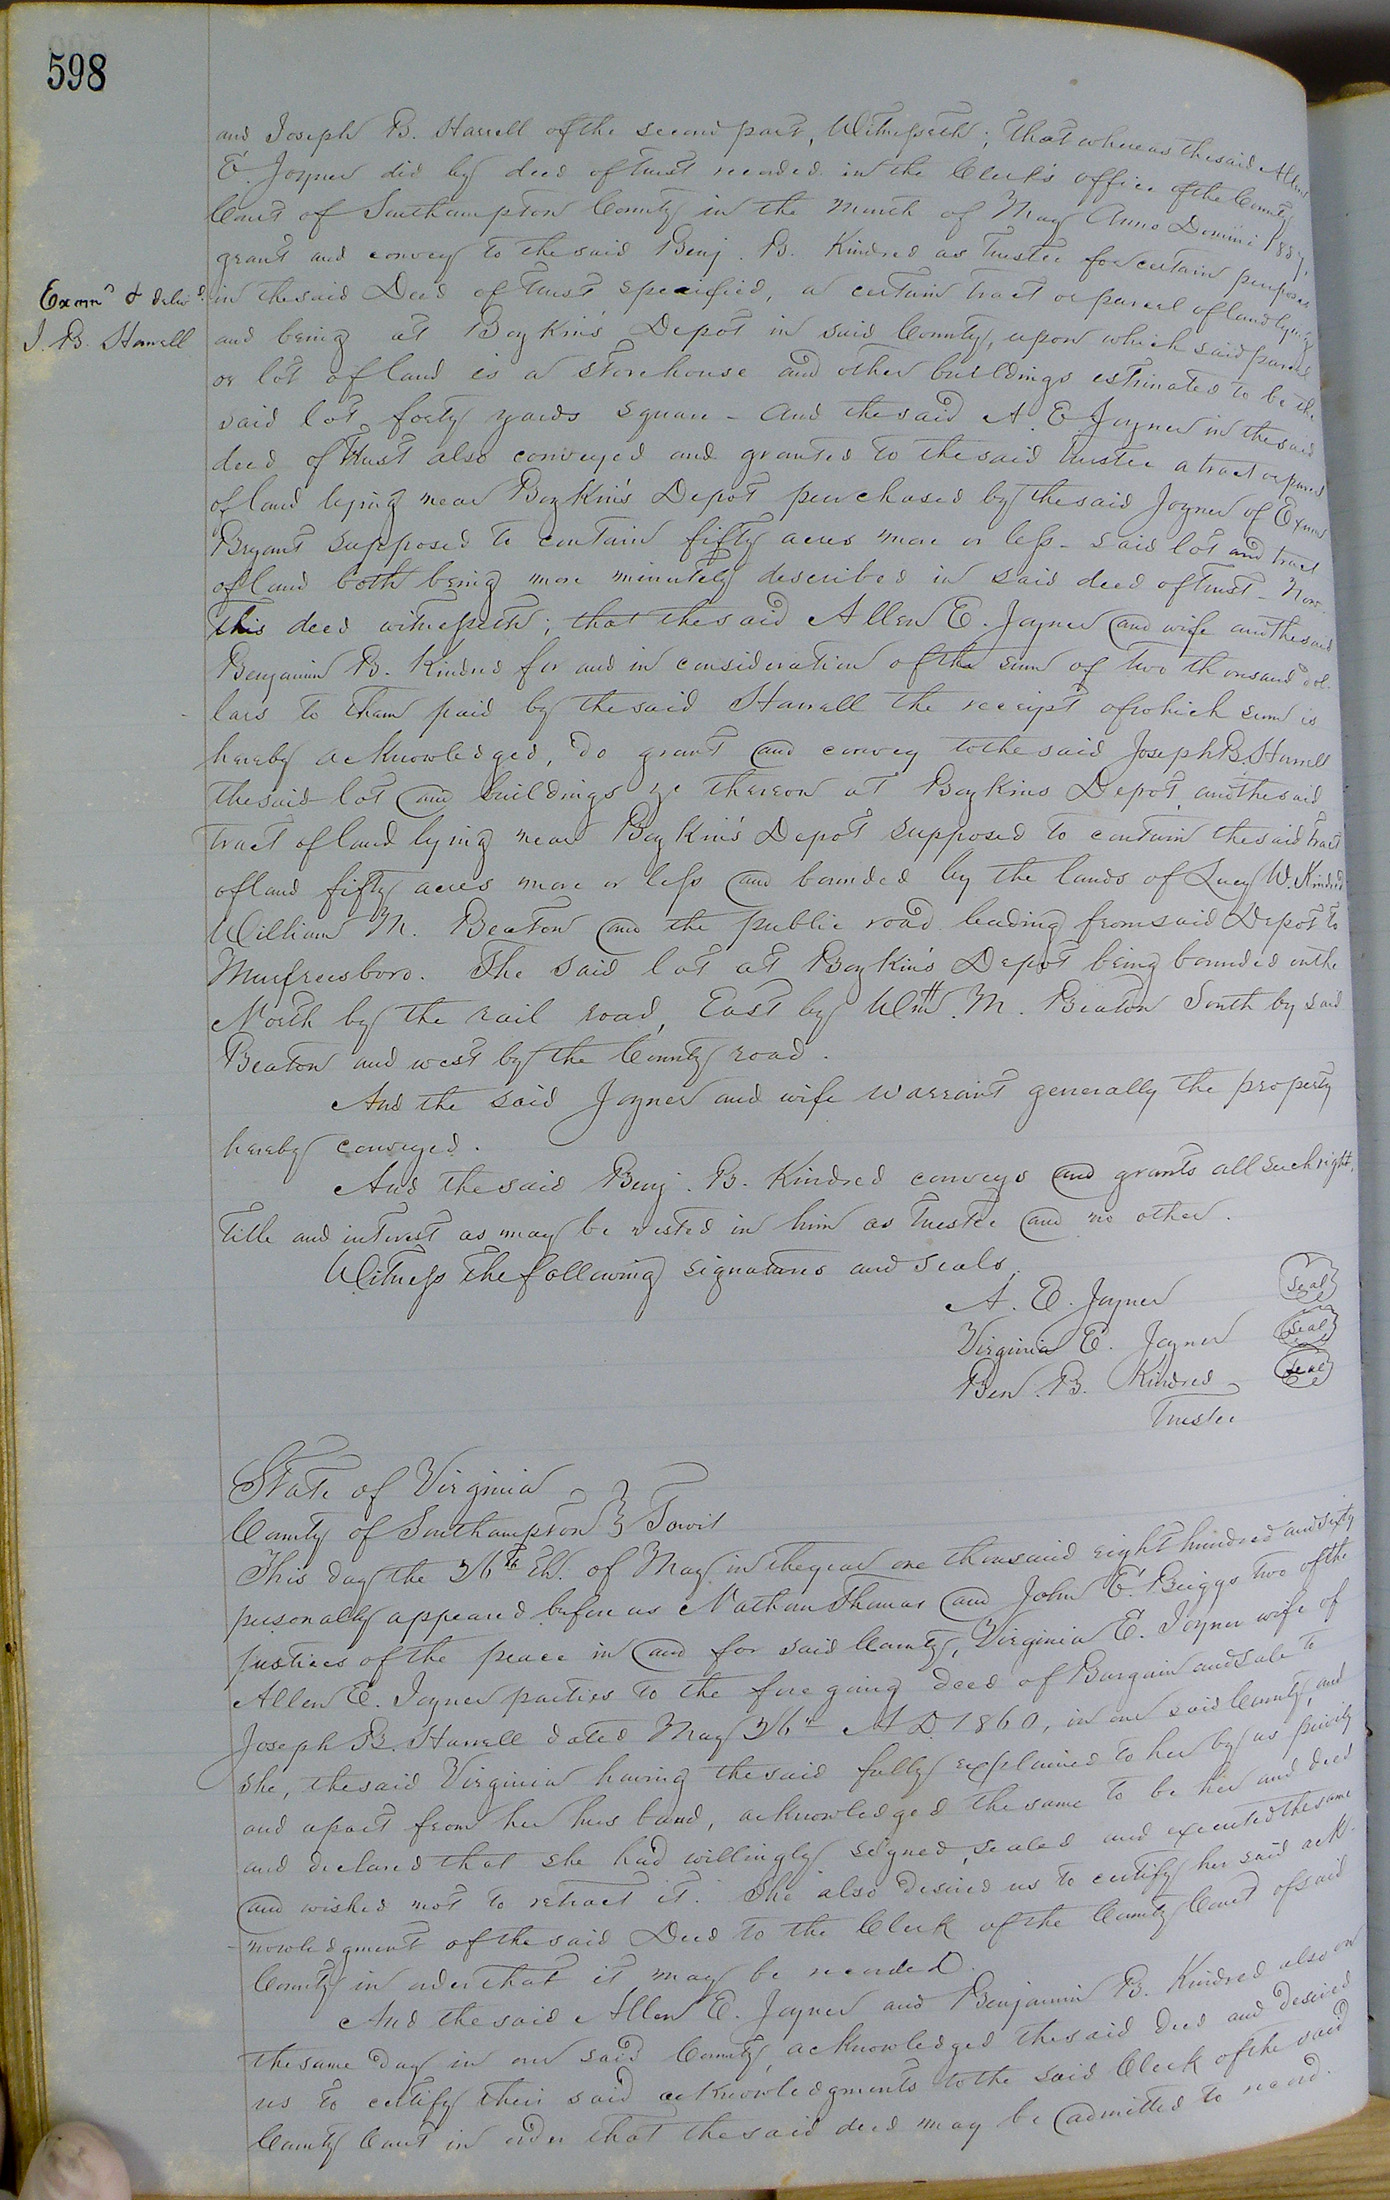 598
and Joseph B. Harrell of the second part, Witnesseth; that whereas the said Allen
E. Joyner did by deed of trust recorded in the Clerk's office of the County
Court of Southampton County in the month of May Anno Domini 1857,
grant and convey to the said Benj. B. Kindred as Trustee for certain purposes
Exam^d & deliv^d
J. B. Harrell
in the said Deed of trust specified, a certain tract or parcel of land lying
and being at Boykin's Depot in said County, upon which said parcel
or lot of land is a storehouse and other buildings estimated to be the
said lot forty yards square - And the said A. E. Joyner in the said
deed of trust also conveyed and granted to the said trustee a tract or parcel
of land lying near Boykin's Depot purchased by the said Joyner of Exum
Bryant supposed to contain fifty acres more or less - said lot and tract
of land both being more minutely described in said deed of trust - Now
this deed witnesseth; that the said Allen E. Joyner and wife and the said
Benjamin B. Kindred for and in consideration of the sum of two thousand dol-
lars to them paid by the said Harrell the receipt of which sum is
hereby acknowledged, do grant and convey to the said Joseph B. Harrell
the said lot and buildings &c thereon at Boykins Depot, and the said
tract of land lying near Boykin's Depot supposed to contain the said tract
of land fifty acres more or less and bounded by the lands of Lucy W. Kindred
William M. Beaton and the public road leading from said Depot to
Murfreesboro. The said lot at Boykin's Depot being bounded on the
North by the rail road, East by Wm. M. Beaton South by said
Beaton and west by the County road.
And the said Joyner and wife warrant generally the property
hereby conveyed.
And the said Benj. B. Kindred conveys and grants all such right,
title and interest as may be vested in him as Trustee and no other.
Witness the following signatures and seals.
A. E. Joyner seal
Virginia E. Joyner seal
Ben. B. Kindred seal
Trustee
State of Virginia
County of Southampton } Towit
This day the 26th of May in the year one thousand eight hundred and sixty
personally appeared before us Nathan Thomas and John E. Briggs two of the
justices of the peace in and for said County, Virginia E. Joyner wife of
Allen E. Joyner parties to the foregoing deed of Bargain and Sale to
Joseph B. Harrell dated May 26th A D 1860, in our said County, and
she, the said Virginia having the said fully explained to her by us privily
and apart from her husband, acknowledged the same to be her and deed
and declared that she had willingly signed, sealed and executed the same
and wished not to retract it. She also desired us to certify her said ack-
nowledgment of the said Deed to the Clerk of the County Court of said
County in order that it may be recorded.
And the said Allen E. Joyner and Benjamin B. Kindred also on
the same day in our said County, acknowledged the said deed and desired
us to certify their said acknowledgments to the said Clerk of the said
County Court in order that the said deed may be admitted to record.